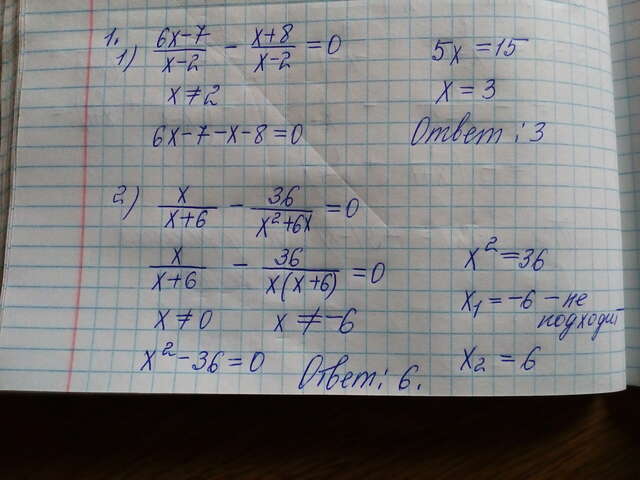 1.
1) (6x-7)/(x-2) - (x+8)/(x-2) = 0
x ≠ 2
6x-7-x-8=0
5x = 15
x = 3
Ответ: 3
2) x/(x+6) - 36/(x²+6x) = 0
x/(x+6) - 36/(x(x+6)) = 0
x ≠ 0 x ≠ -6
x²-36=0
x² = 36
x₁ = -6 - не
подходит
x₂ = 6
Ответ: 6.